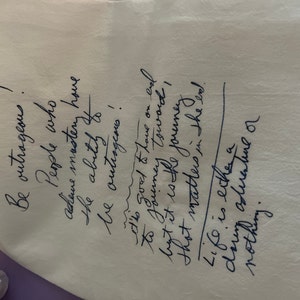 Be outrageous!
People who
achieve mastery have
the ability to
be outrageous!
it's good to have an end
to journey toward!
but it is the journey
that matters in the end.
Life is either a
daring adventure or
nothing.